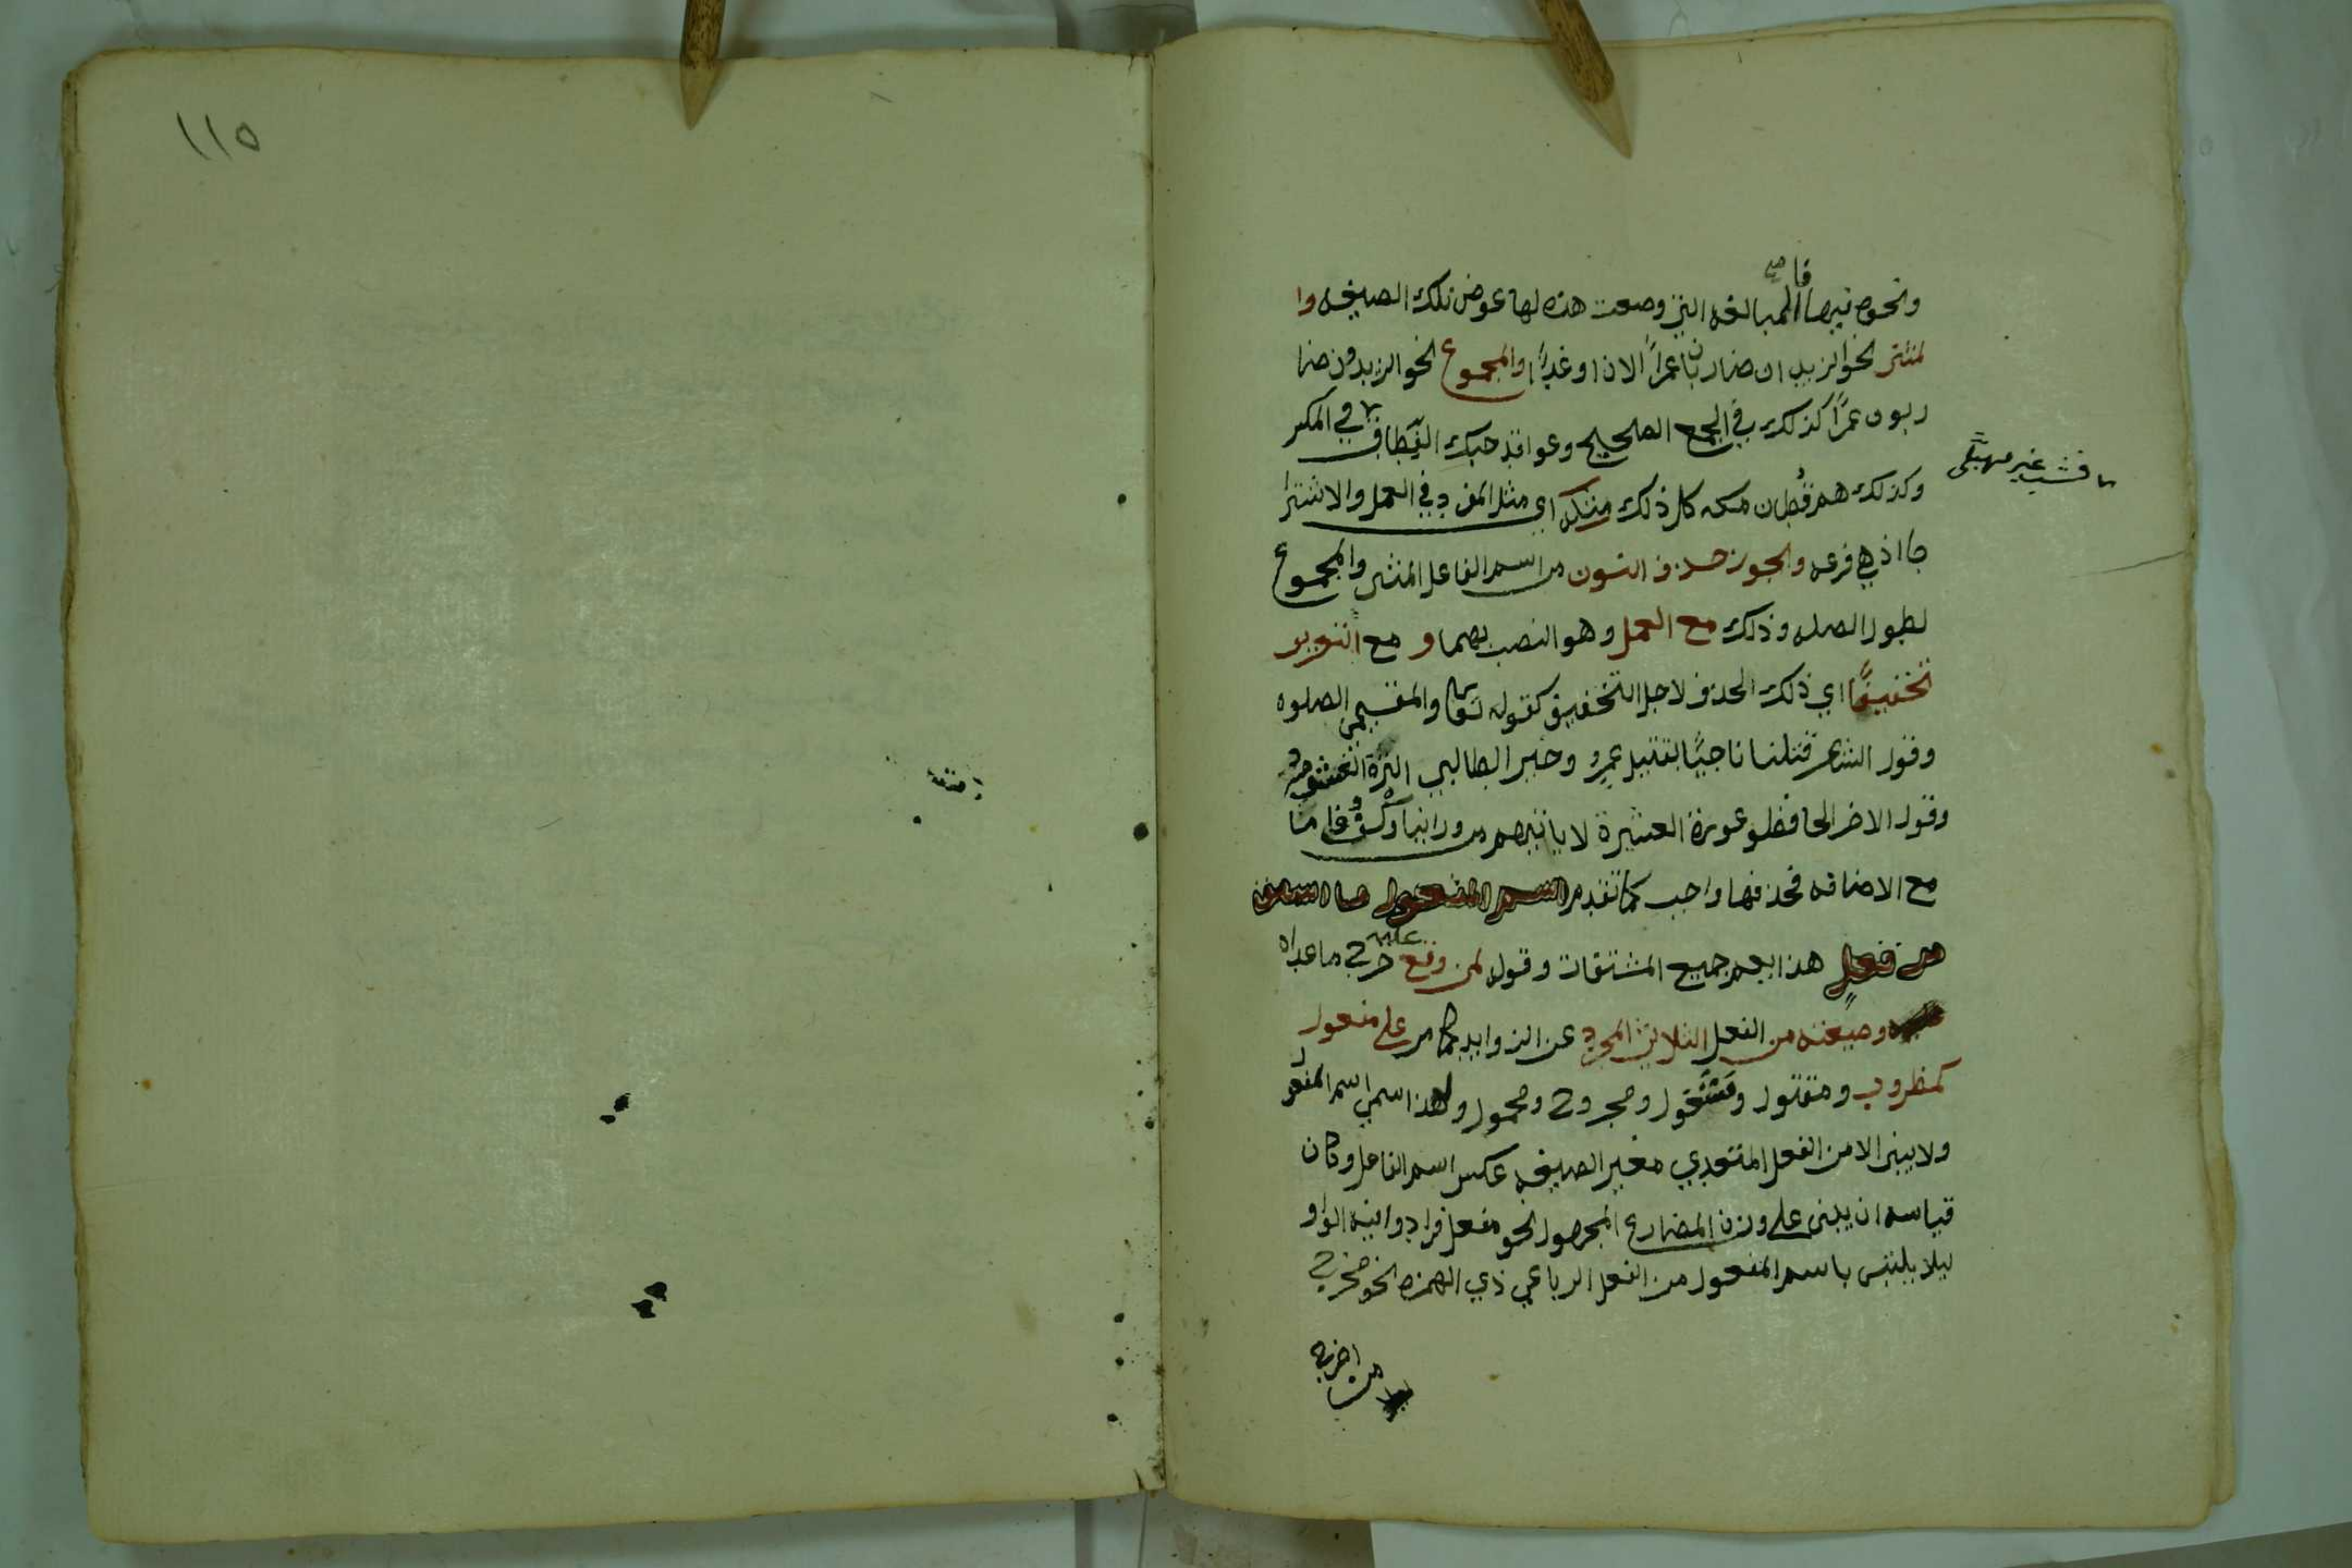 ١١٥
قامت
ونحوه فيها المبالغه التي وضعت هذه لها عوض تلك الصيغه وا
لمثنى نحو الزيدان ضاربان عمراً الان او غداً والمجموع نحو الزيدون ضا
ربون عمراً كذلك في الجمع الصحيح وعواقد حبك النطاق في المكسر
فشب غير مهبّل
وكذلك هم قطان مكه كل ذلك مثله اي مثل المفرد في العمل والاشترا
ط اذ هي فرعه ويجوز حذف النون من اسم الفاعل المثنى والمجموع
لطول الصله وذلك مع العمل وهو النصب بهما و مع التعريف
تخفيفًا اي ذلك الحذف لاجل التخفيف كقوله تعالى والمقيمي الصلوه
وقول الشاعر قتلنا ناجيًا بقتيل عمرو وخير الطالبي الترة الغشوم
وقول الاخر الحافظو عورة العشيرة لا ياتيهم من ورائنا وكف فاما
مع الاضافه فحذفها واجب كما تقدم اسم المفعول ما اشتق
من فعل هذا يعم جميع المشتقات وقوله لمن وقع عليه خرج ما عداه
وصيغته من الفعل الثلاثي المجرد عن الزوايد كما مر على مفعول
كمضروب ومقتول ومجروح ومحمول ولهذا سمي اسم المفعول
ولا يبنى الا من الفعل المتعدي مغير الصيغه عكس اسم الفاعل وكان
قياسه ان يبنى على وزن المضارع المجهول نحو مفعل فزادوا فيه الواو
ليلا يلتبس باسم المفعول من الفعل الرباعي ذي الهمزه نحو مخرج
من اخرج